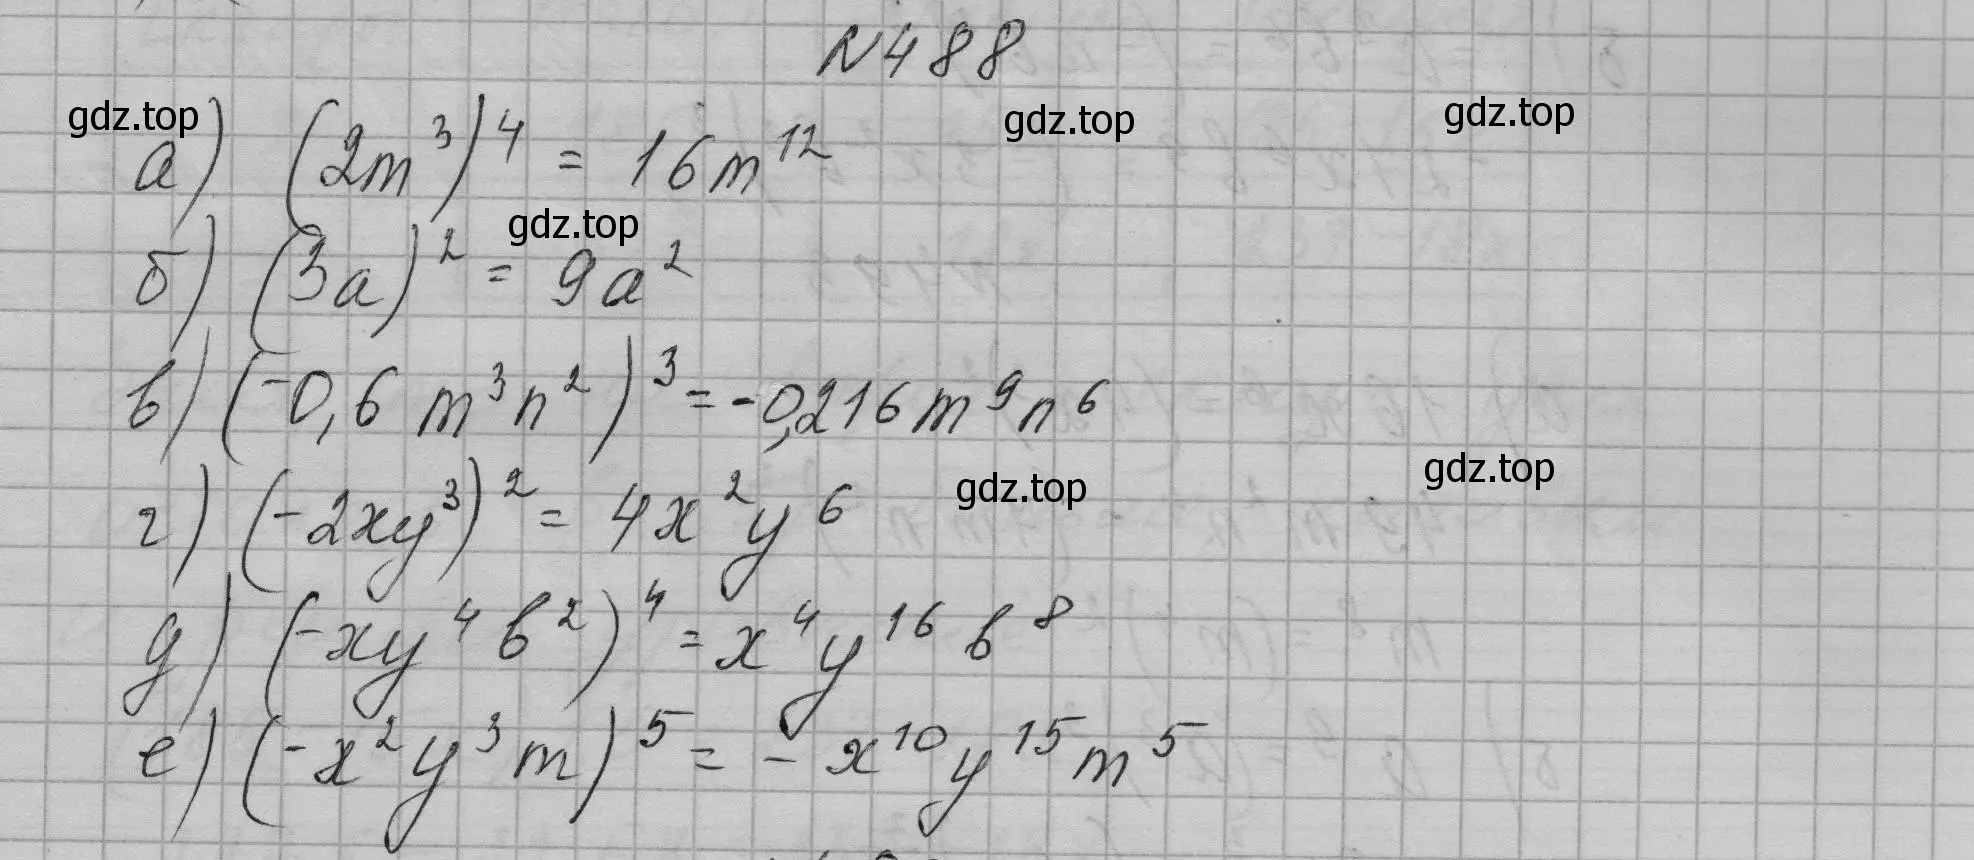 №488
gdz.top
gdz.top
gdz.top
а) (2m³)⁴ = 16m¹²
gdz.top
б) (3a)² = 9a²
в) (-0,6 m³n²)³ = -0,216m⁹n⁶
gdz.top
gdz.top
г) (-2xy³)² = 4x²y⁶
д) (-xy⁴b²)⁴ = x⁴y¹⁶b⁸
е) (-x²y³m)⁵ = -x¹⁰y¹⁵m⁵